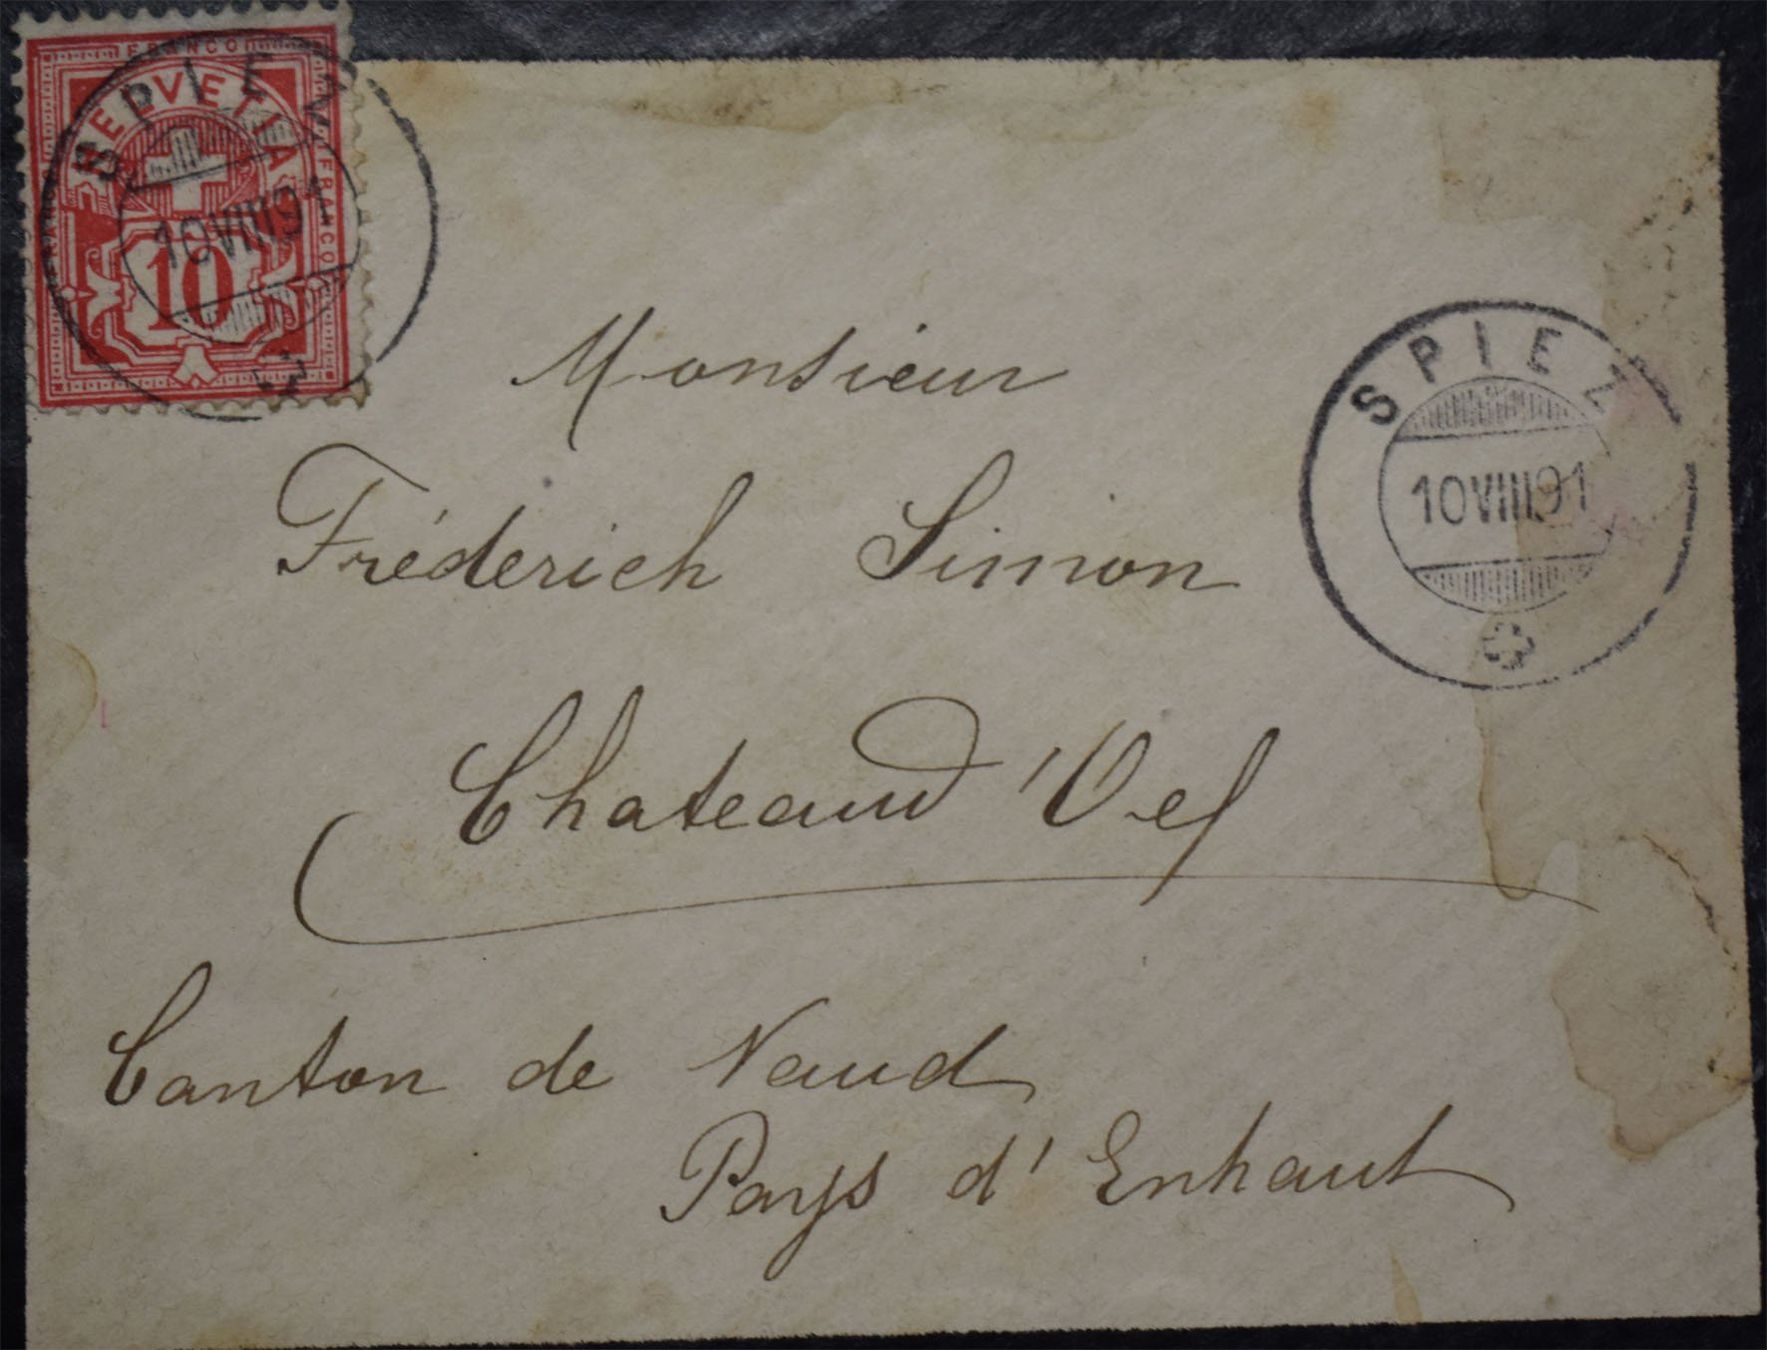 FRANCO
HELVETIA
FRANCO
10
SPIEZ
10VIII91
SPIEZ
10VIII91
Monsieur
Fréderich Simon
Chateaud'Oef
Canton de Vaud
Pays d'Enhaut